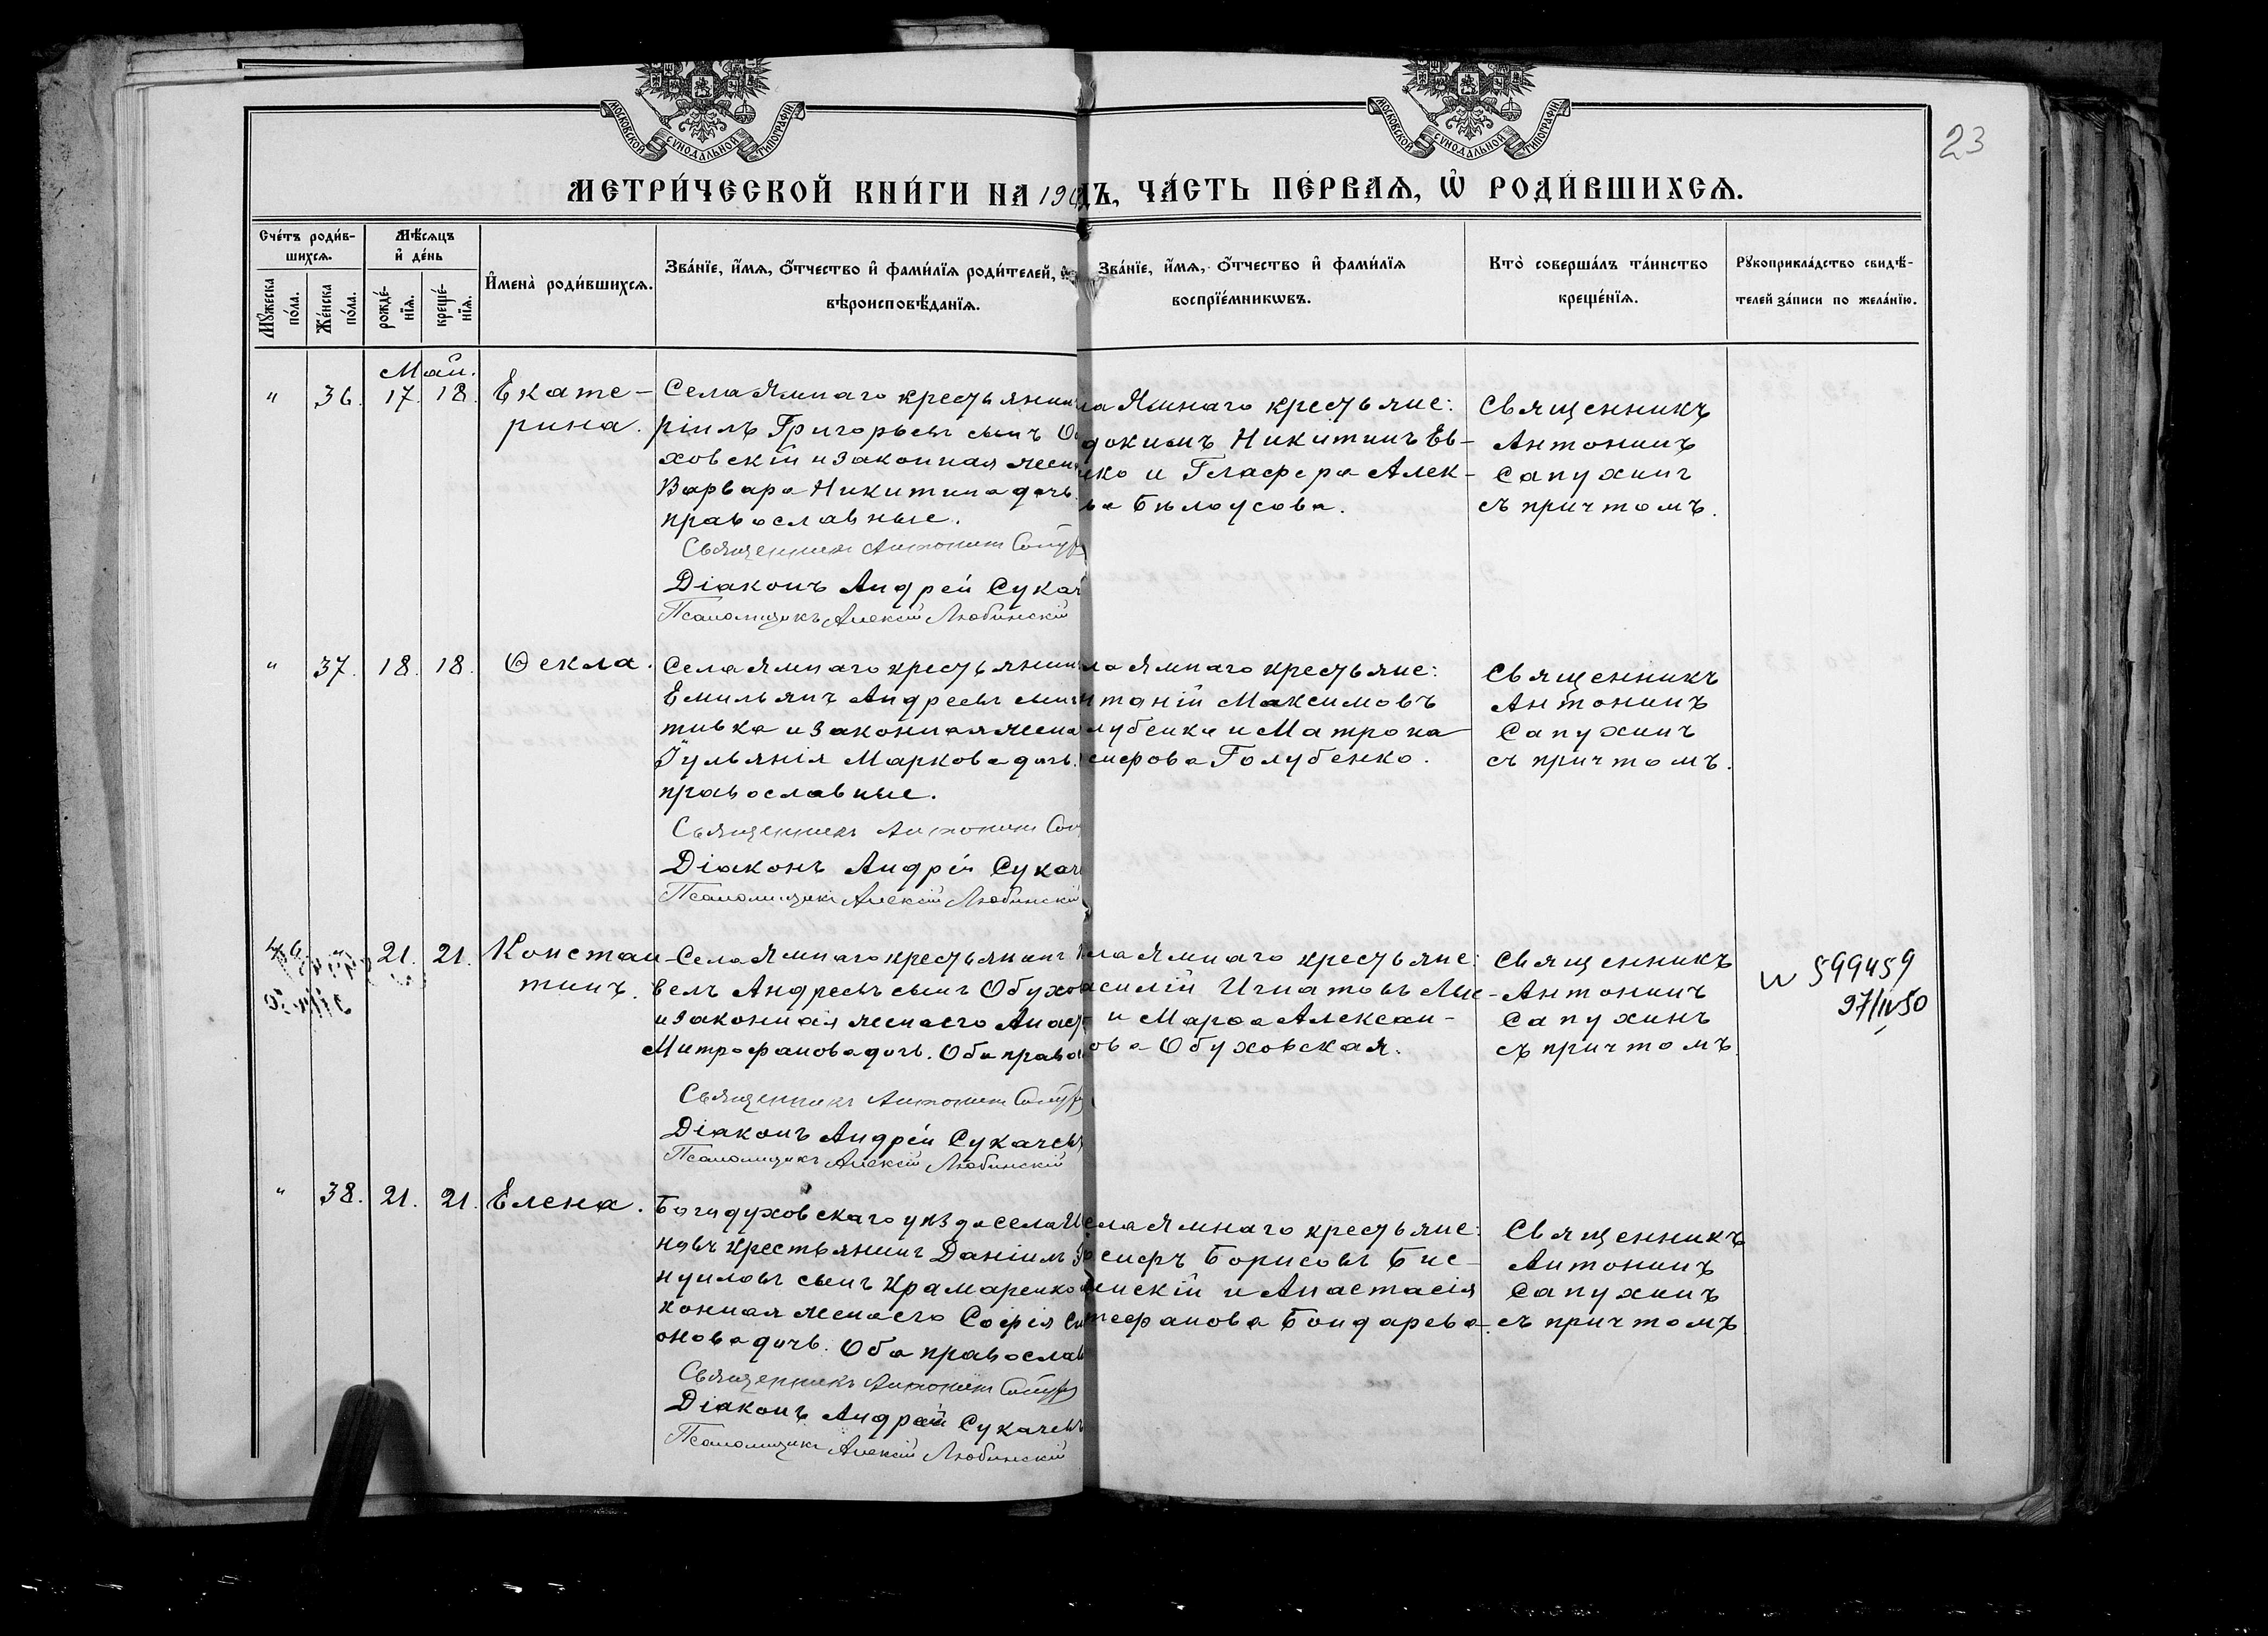 МОСКОВСКОЙ СѴНОДАЛЬНОЙ ТИПОГРАФІИ
МОСКОВСКОЙ СѴНОДАЛЬНОЙ ТИПОГРАФІИ
23
МЕТРИ́ЧЕСКОЙ КНИ́ГИ НА 190
ДЪ, ЧА́СТЬ ПЕ́РВАѦ, Ѡ РОДИ́ВШИХСѦ.
Сче́тъ роди́в-
шихсѧ.
Мꙋ́жеска по́ла.
Же́нска по́ла.
Мѣ́сѧцъ
и҆ де́нь
рожде́-
нїѧ.
креще́-
нїѧ.
И҆мена̀ роди́вшихсѧ.
Зва́нїе, и҆́мѧ, ѻ҆́тчество и҆ фами́лїѧ роди́телей,
вѣроисповѣ́данїѧ.
Зва́нїе, и҆́мѧ, ѻ҆́тчество и҆ фами́лїѧ
воспрїе́мникѡвъ.
Кто̀ соверша́лъ та́инство
креще́нїѧ.
Рꙋкоприкла́дство свидѣ́-
телей за́писи по жела́нїю.
Май.
" 36. 17. 18. Екате-
рина.
Села Ямнаго крестьянин
ріилъ Григорьевъ сынъ О
ховскій и законная жен
Варвара Никитина дочь.
православные.
Священникъ Антонин Сапух
Діаконъ Андрей Сукач
Псаломщикъ Алексій Любинскій
ла Ямнаго крестьяне:
докимъ Никитинъ Ев-
ко и Гласфера Алек-
ва Бѣлоусова.
Священникъ
Антонинъ
Сапухинъ
съ причтомъ.
" 37. 18. 18. Ѳекла.
Села Ямнаго крестьянин
Емильянъ Андреевъ сын
тивка и законная жена
Іульянія Маркова дочь.
православные.
Священникъ Антонин Сап
Діаконъ Андрей Сукач
Псаломщикъ Алексій Любинскій
ла Ямнаго крестьяне:
нтоній Максимовъ
лубенко и Матрона
сифова Голубенко.
Священникъ
Антонинъ
Сапухинъ
съ причтомъ.
46 21. 21. Констан-
тинъ.
Села Ямнаго крестьянинъ
велъ Андреевъ сынъ Обухов
и законная жена его Анаст
Митрофанова дочь. Оба право
Священникъ Антонин Сапух
Діаконъ Андрей Сукачевъ
Псаломщикъ Алексій Любинскій
ла Ямнаго крестьяне:
асилій Игнатовъ Лы-
и Марѳа Алексан-
ова Обуховская.
Священникъ
Антонинъ
Сапухинъ
съ причтомъ.
599459
27/IV 50
" 38. 21. 21. Елена.
Богодуховскаго уѣзда села И
новъ крестьянинъ Даніилъ
нуиловъ сынъ Крамаренко
конная жена его Софія Си
онова дочь. Оба православ
Священникъ Антонин Сапух
Діаконъ Андрей Сукачевъ
Псаломщикъ Алексій Любинскій
ела Ямнаго крестьяне:
осифъ Борисовъ Бис-
мскій и Анастасія
тефанова Бондарева.
Священникъ
Антонинъ
Сапухинъ
съ причтомъ